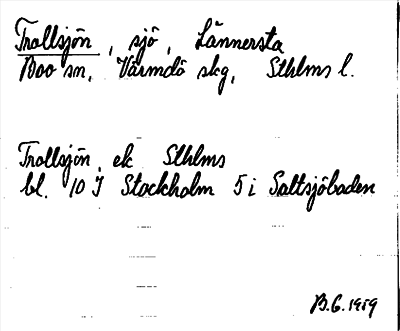 Trollsjön, sjö, Lännersta
Boo sn, Värmdö skg, Sthlms l.
Trollsjön, ek Sthlms
bl. 10 I Stockholm 5 i Saltsjöbaden
B.G. 1959